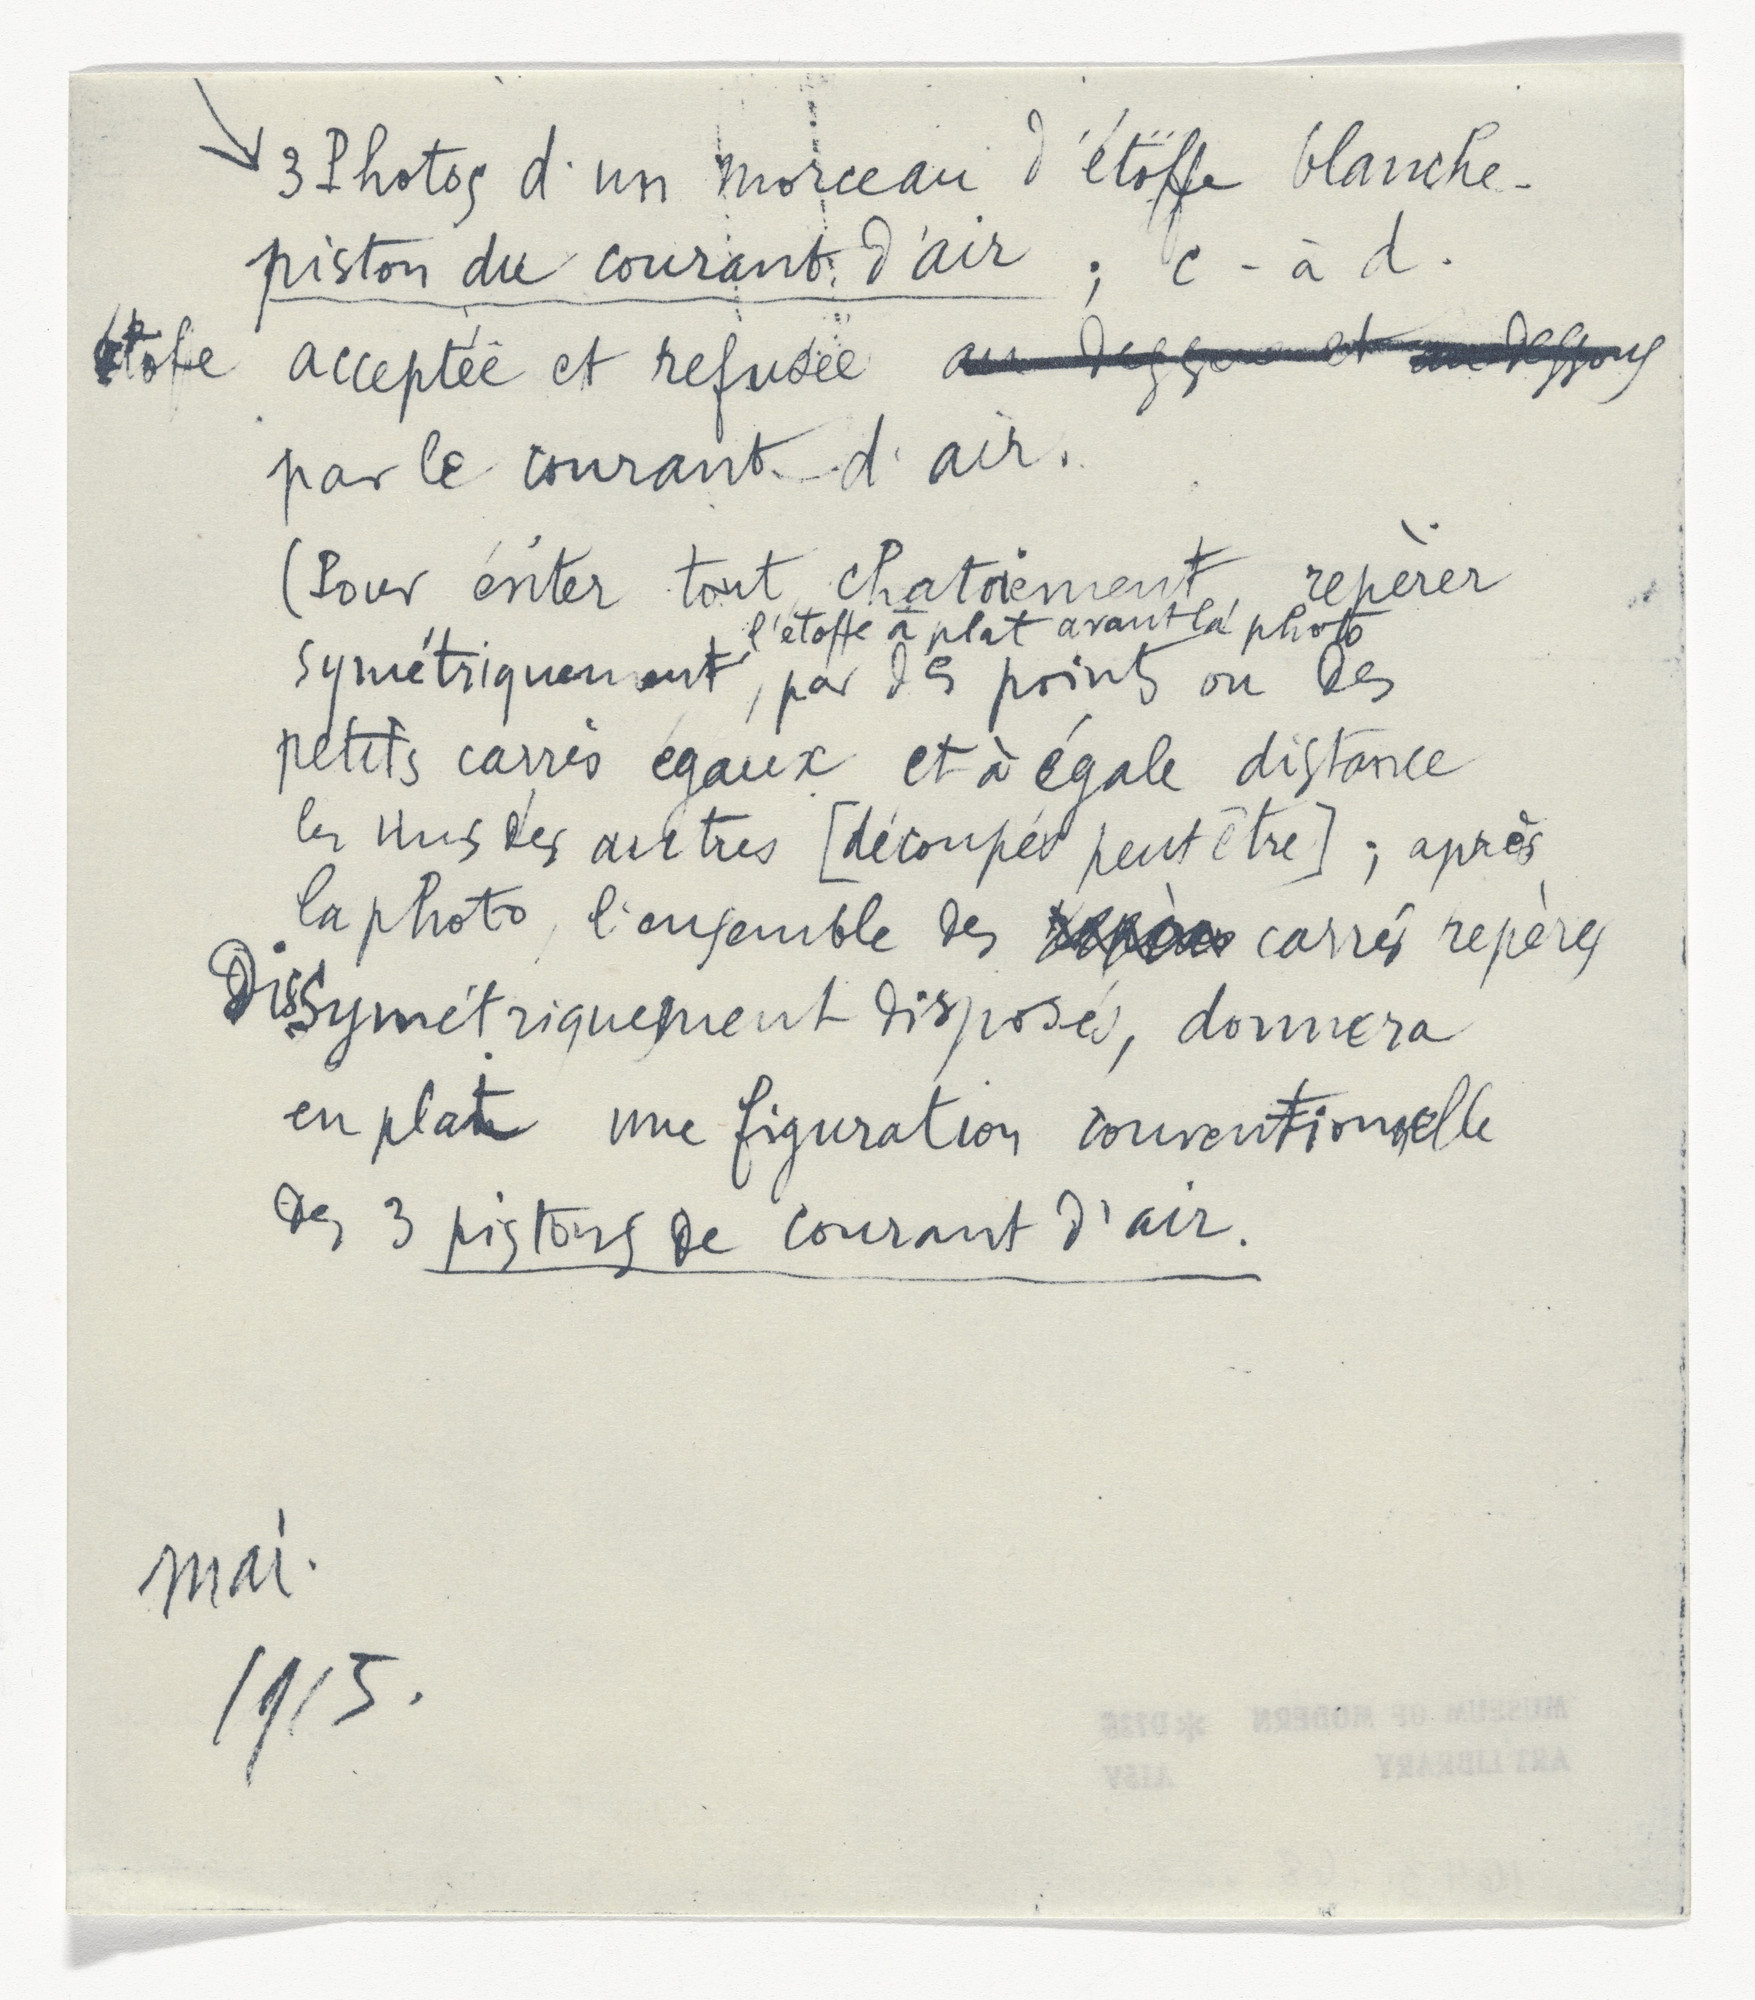 3 Photos d'un morceau d'étoffe blanche -
piston du courant d'air ; c - à d.
étofe acceptée et refusée au dessus et au dessous
par le courant d'air.
(Pour éviter tout chatoiement, repèrer
l'étoffe à plat avant la photo
symétriquement, par des points ou des
petits carrés égaux et à égale distance
les uns des autres [découpés peut être] ; après
la photo, l'ensemble des carrés repères
Dissymétriquement disposés, donnera
en plat une figuration conventionnelle
des 3 pistons de courant d'air.
mai.
1915.
MUSEUM OF MODERN
ART LIBRARY